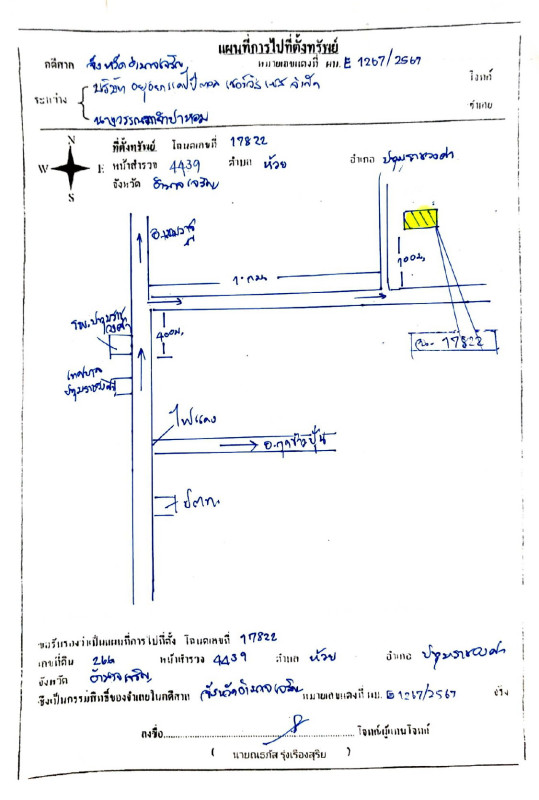 แผนที่การไปที่ตั้งทรัพย์
คดีศาล จังหวัดอำนาจเจริญ หมายเลขแดงที่ ผบ. E 1267/2567
ระหว่าง { บริษัท อยุธยา แคปปิตอล เซอร์วิสเซส จำกัด โจทก์
จำเลย
N
W E
S
ที่ตั้งทรัพย์ โฉนดเลขที่ 17822
หน้าสำรวจ 4439 ตำบล ห้วย อำเภอ ปทุมราชวงศา
จังหวัด อำนาจเจริญ
1 กม.
100 ม.
รพ. ปทุมราชวงศา
400 ม.
17822
เทศบาล
ไฟแดง
อ.กุดข้าวปุ้น
ปตท.
ขอรับรองว่าเป็นแผนที่การไปที่ตั้ง โฉนดเลขที่ 17822
เลขที่ดิน 266 หน้าสำรวจ 4439 ตำบล ห้วย อำเภอ ปทุมราชวงศา
จังหวัด อำนาจเจริญ
ซึ่งเป็นกรรมสิทธิ์ของจำเลยในคดีศาล จังหวัดอำนาจเจริญ หมายเลขแดงที่ ผบ. E 1267/2567 จริง
ลงชื่อ........................โจทก์/ผู้แทนโจทก์
( นายณธภัส รุ่งเรืองสุริย )